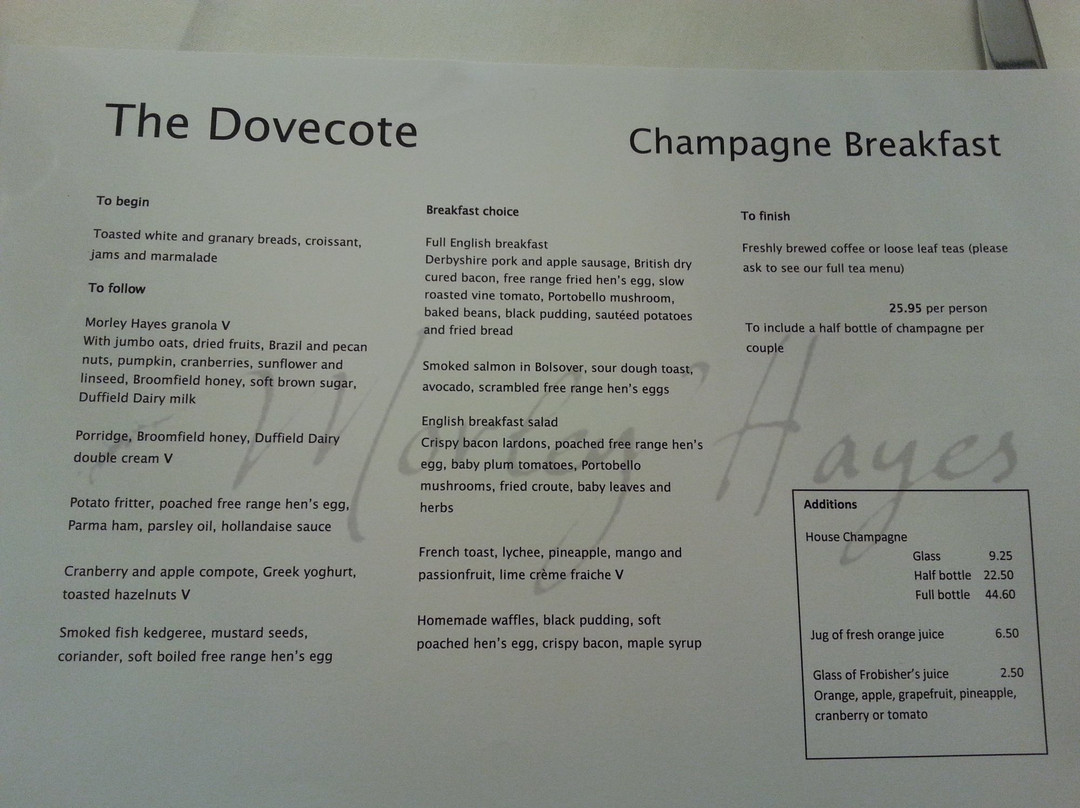 The Dovecote
Champagne Breakfast
To begin
Toasted white and granary breads, croissant,
jams and marmalade
To follow
Morley Hayes granola V
With jumbo oats, dried fruits, Brazil and pecan
nuts, pumpkin, cranberries, sunflower and
linseed, Broomfield honey, soft brown sugar,
Duffield Dairy milk
Porridge, Broomfield honey, Duffield Dairy
double cream V
Potato fritter, poached free range hen's egg,
Parma ham, parsley oil, hollandaise sauce
Cranberry and apple compote, Greek yoghurt,
toasted hazelnuts V
Smoked fish kedgeree, mustard seeds,
coriander, soft boiled free range hen's egg
Breakfast choice
Full English breakfast
Derbyshire pork and apple sausage, British dry
cured bacon, free range fried hen's egg, slow
roasted vine tomato, Portobello mushroom,
baked beans, black pudding, sautéed potatoes
and fried bread
Smoked salmon in Bolsover, sour dough toast,
avocado, scrambled free range hen's eggs
English breakfast salad
Crispy bacon lardons, poached free range hen's
egg, baby plum tomatoes, Portobello
mushrooms, fried croute, baby leaves and
herbs
French toast, lychee, pineapple, mango and
passionfruit, lime crème fraiche V
Homemade waffles, black pudding, soft
poached hen's egg, crispy bacon, maple syrup
To finish
Freshly brewed coffee or loose leaf teas (please
ask to see our full tea menu)
25.95 per person
To include a half bottle of champagne per
couple
Morley Hayes
Additions
House Champagne
Glass 9.25
Half bottle 22.50
Full bottle 44.60
Jug of fresh orange juice 6.50
Glass of Frobisher's juice 2.50
Orange, apple, grapefruit, pineapple,
cranberry or tomato